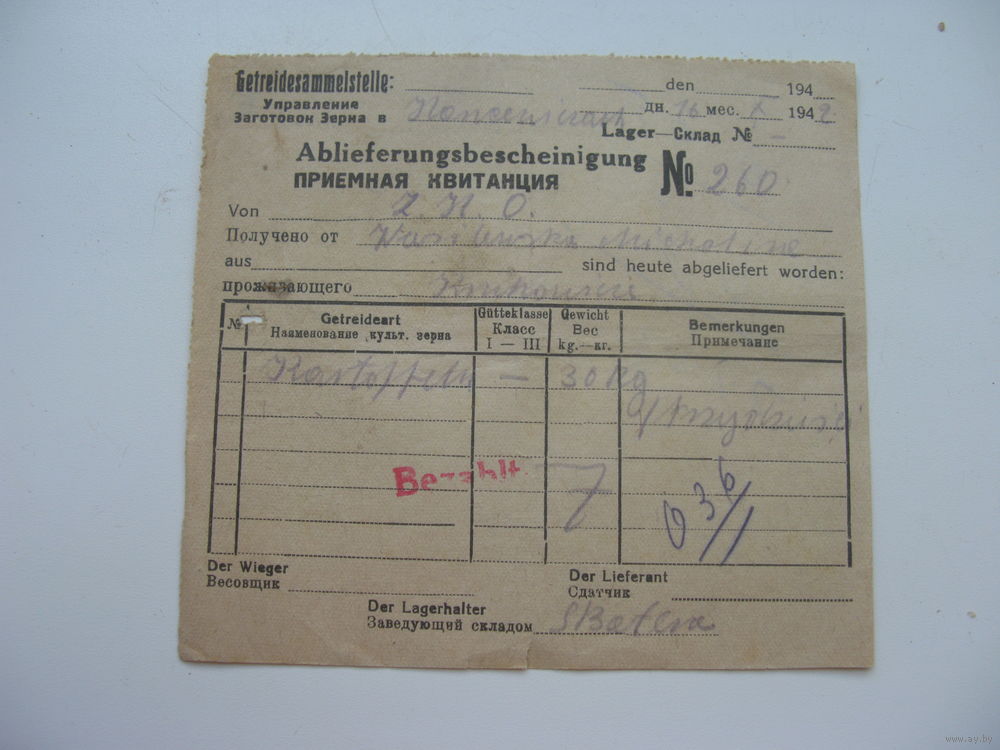 Getreidesammelstelle: den 194
Управление дн. 16 мес. X 1942
Заготовок Зерна в
Lager—Склад № –
Ablieferungsbescheinigung № 260
ПРИЕМНАЯ КВИТАНЦИЯ
Von Z. K. O.
Получено от
aus sind heute abgeliefert worden:
проживающего
№ Getreideart Gütteklasse Gewicht Bemerkungen
Наименование культ. зерна Класс Вес Примечание
I — III kg.—кг.
Kartoffeln — 30 kg
Bezahlt
7
036/1
Der Wieger Der Lieferant
Весовщик Сдатчик
Der Lagerhalter
Заведующий складом
www.ay.by